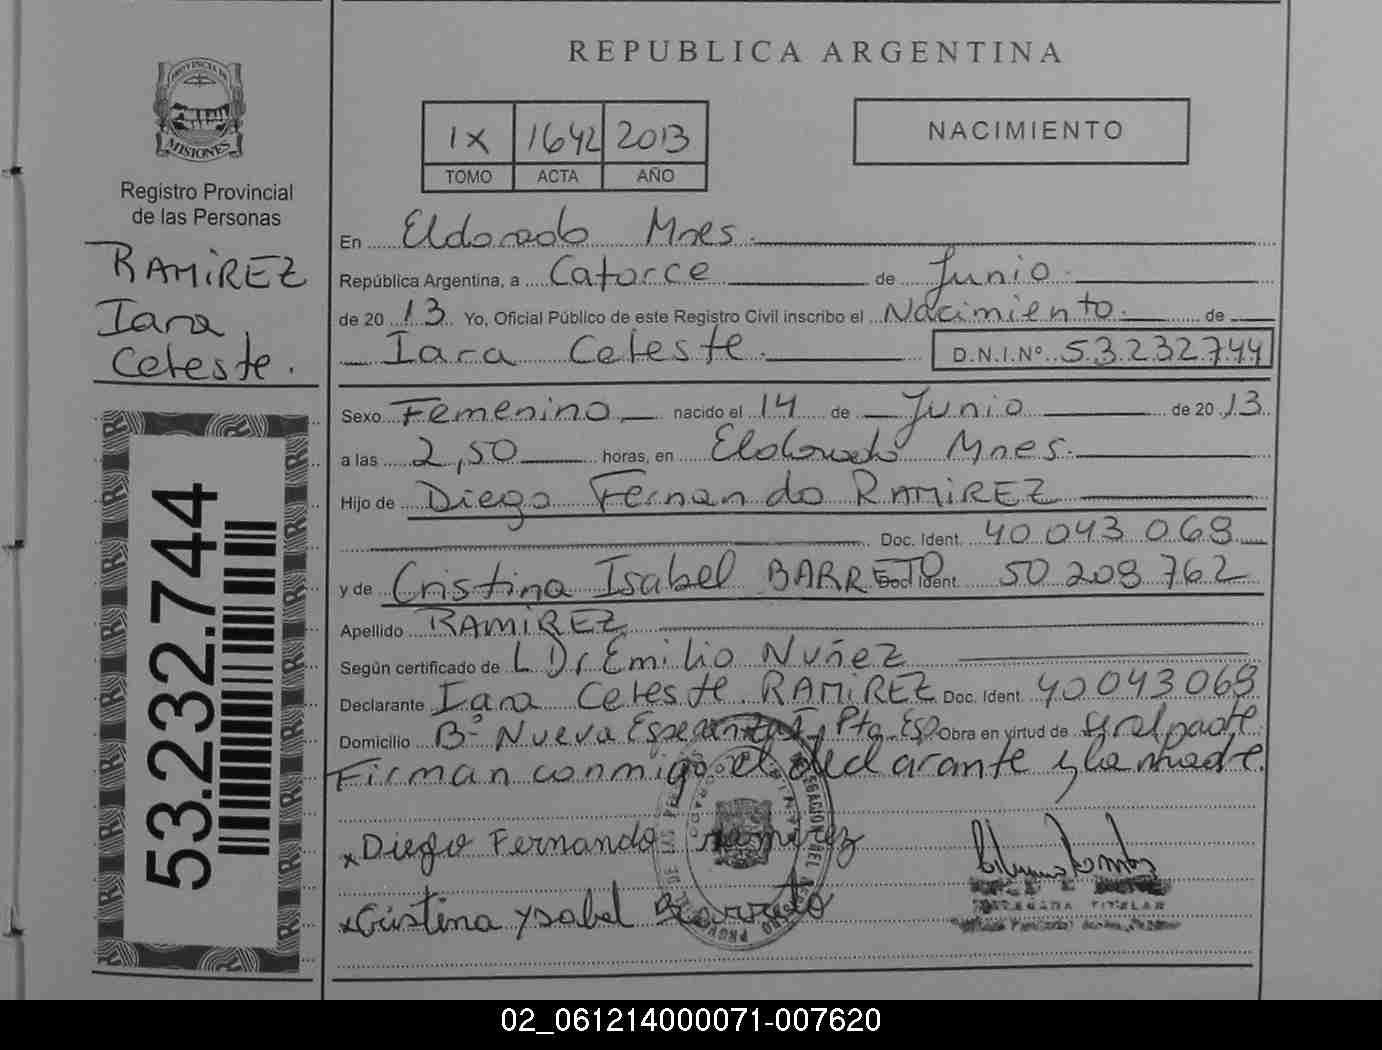 REPUBLICA ARGENTINA
PROVINCIA DE
MISIONES
Registro Provincial
de las Personas
RAMIREZ
Iara
Celeste.
53.232.744
IX 1642 2013
TOMO ACTA AÑO
NACIMIENTO
En Eldorado Mnes.
República Argentina, a Catorce de Junio.
de 20 13 Yo, Oficial Público de este Registro Civil inscribo el Nacimiento. de
Iara Celeste. D.N.I.Nº 53.232744
Sexo Femenino nacido el 14 de Junio de 20 13
a las 2,50 horas, en Eldorado Mnes.
Hijo de Diego Fernando RAMIREZ
Doc. Ident. 40 043 068
y de Cristina Isabel BARRETO Doc. Ident. 50 208 762
Apellido RAMIREZ
Según certificado de L Dr Emilio Nuñez
Declarante Iara Celeste RAMIREZ Doc. Ident. 40 043 068
Domicilio Bº Nueva Esperanza, Pto. Esp. Obra en virtud de
Firman conmigo el declarante y la madre.
x Diego Fernando Ramirez
x Cristina Ysabel Barreto
TITULAR
02_061214000071-007620